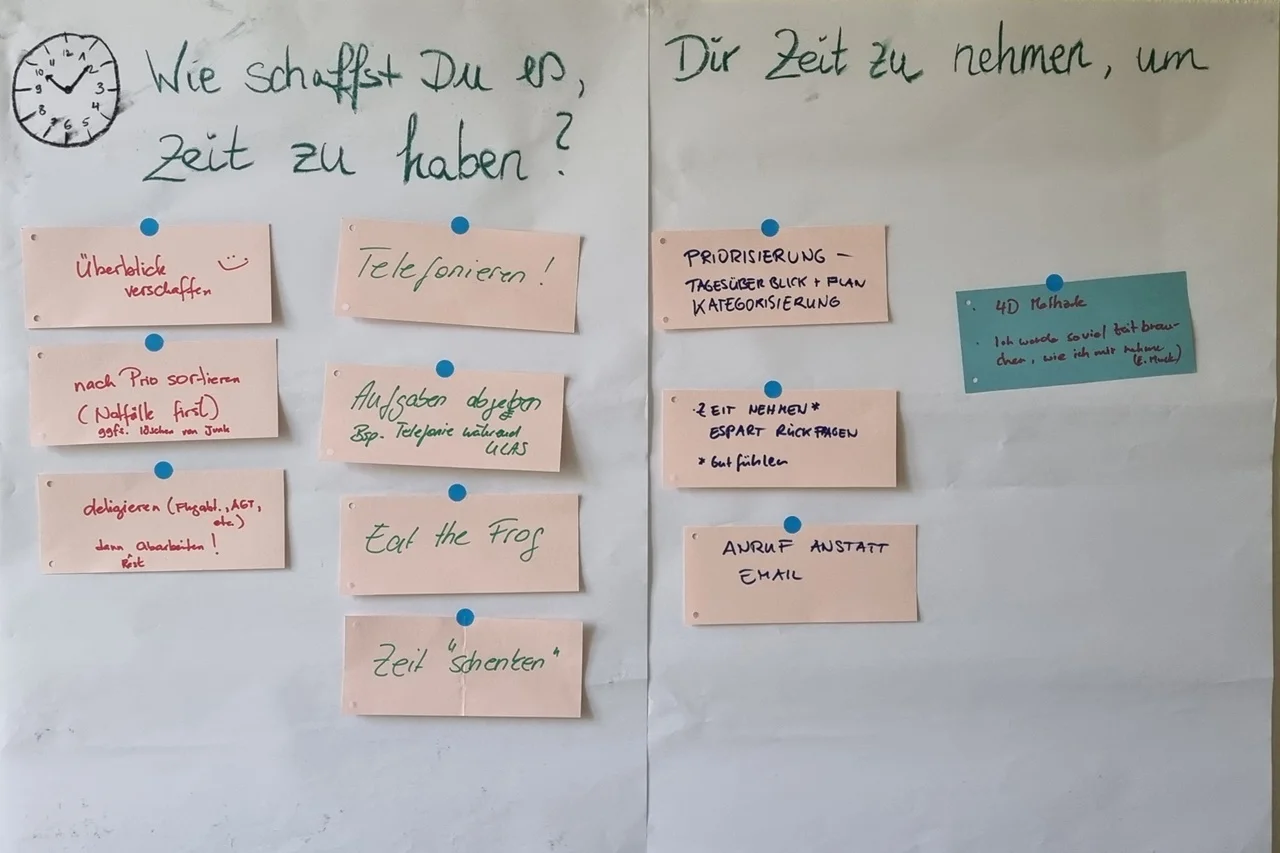 Wie schaffst Du es, Dir Zeit zu nehmen, um
Zeit zu haben?
12
1
2
3
4
5
6
7
8
9
10
11
Überblick
verschaffen
nach Prio sortieren
(Notfälle first)
ggfs. löschen von Junk
deligieren (Flugabt., AGT,
etc.)
dann abarbeiten!
Rest
Telefonieren!
Aufgaben abgeben
Bsp. Telefonie während
Eat the Frog
Zeit "schenken"
PRIORISIERUNG –
TAGESÜBERBLICK + PLAN
KATEGORISIERUNG
ZEIT NEHMEN*
ESPART RÜCKFRAGEN
* Gut fühlen
ANRUF ANSTATT
EMAIL
4D Methode
Ich werde soviel Zeit brau-
chen, wie ich mir nehme
(E. )